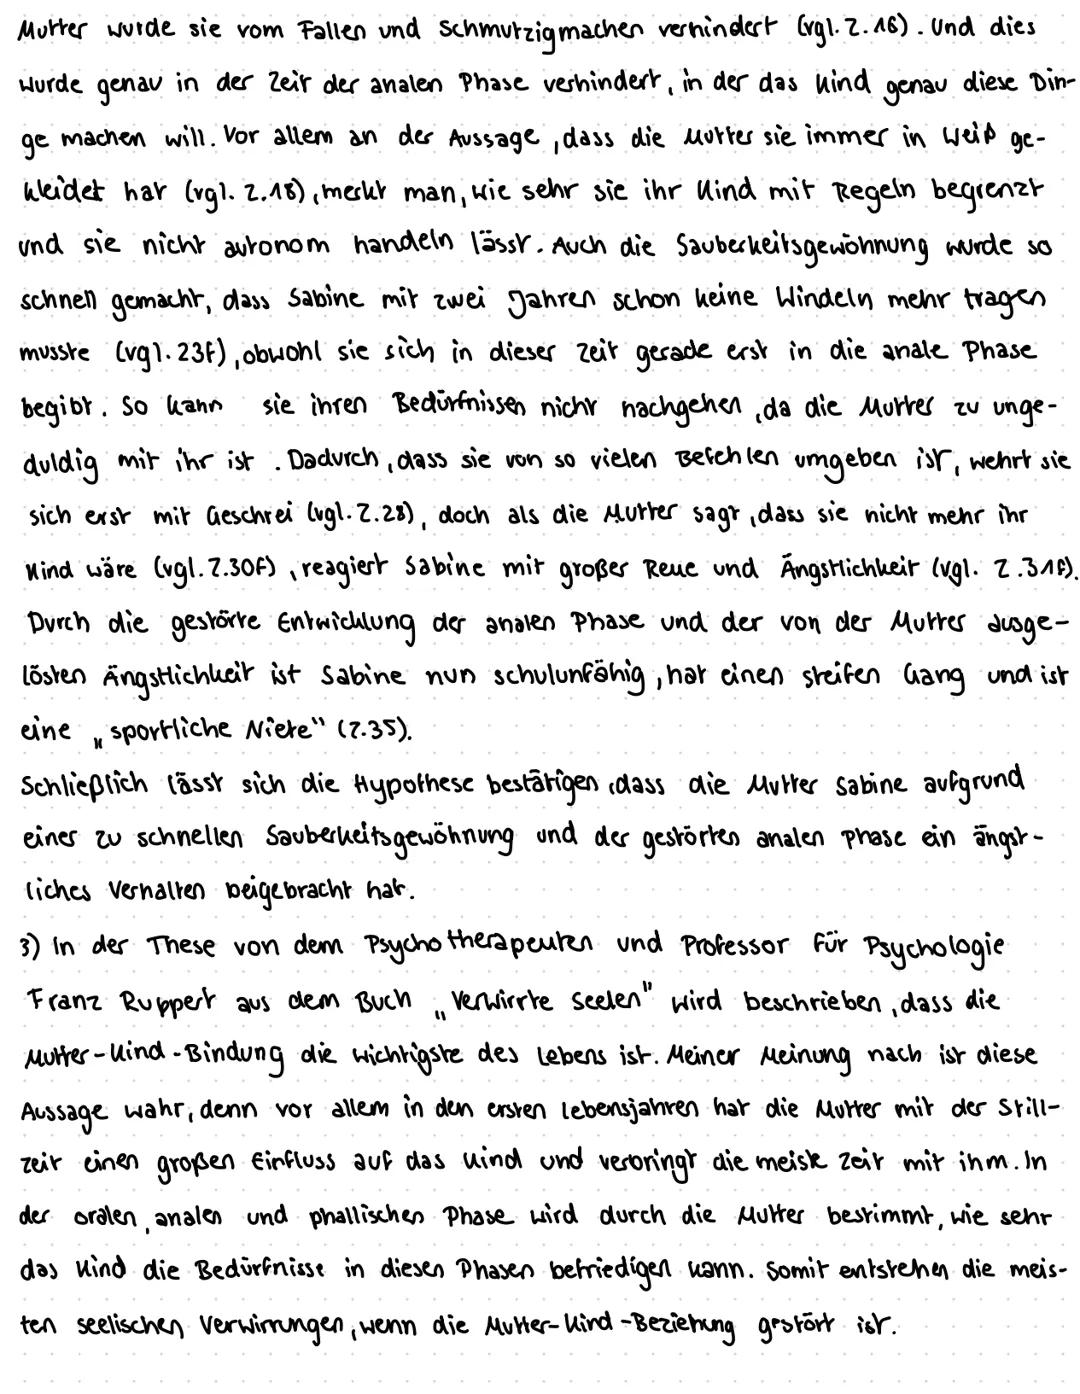 Mutter wurde sie vom Fallen und Schmutzigmachen verhindert (vgl. Z. 16). Und dies
wurde genau in der Zeit der analen Phase verhindert, in der das Kind genau diese Din-
ge machen will. Vor allem an der Aussage, dass die Mutter sie immer in Weiß ge-
kleidet hat (vgl. Z.18), merkt man, wie sehr sie ihr Kind mit Regeln begrenzt
und sie nicht autonom handeln lässt. Auch die Sauberkeitsgewöhnung wurde so
schnell gemacht, dass Sabine mit zwei Jahren schon keine Windeln mehr tragen
musste (vgl. 23f), obwohl sie sich in dieser Zeit gerade erst in die anale Phase
begibt. So kann sie ihren Bedürfnissen nicht nachgehen, da die Mutter zu unge-
duldig mit ihr ist. Dadurch, dass sie von so vielen Befehlen umgeben ist, wehrt sie
sich erst mit Geschrei (vgl. Z.28), doch als die Mutter sagt, dass sie nicht mehr ihr
Kind wäre (vgl. Z.30f), reagiert Sabine mit großer Reue und Ängstlichkeit (vgl. Z.31f).
Durch die gestörte Entwicklung der analen Phase und der von der Mutter ausge-
lösten Ängstlichkeit ist Sabine nun schulunfähig, hat einen steifen Gang und ist
eine „sportliche Niete" (Z.35).
Schließlich lässt sich die Hypothese bestätigen, dass die Mutter Sabine aufgrund
einer zu schnellen Sauberkeitsgewöhnung und der gestörten analen Phase ein ängst-
liches Verhalten beigebracht hat.
3) In der These von dem Psychotherapeuten und Professor für Psychologie
Franz Ruppert aus dem Buch „Verwirrte Seelen" wird beschrieben, dass die
Mutter-Kind-Bindung die wichtigste des Lebens ist. Meiner Meinung nach ist diese
Aussage wahr, denn vor allem in den ersten Lebensjahren hat die Mutter mit der Still-
zeit einen großen Einfluss auf das Kind und verbringt die meiste Zeit mit ihm. In
der oralen, analen und phallischen Phase wird durch die Mutter bestimmt, wie sehr
das Kind die Bedürfnisse in diesen Phasen befriedigen kann. Somit entstehen die meis-
ten seelischen Verwirrungen, wenn die Mutter-Kind-Beziehung gestört ist.